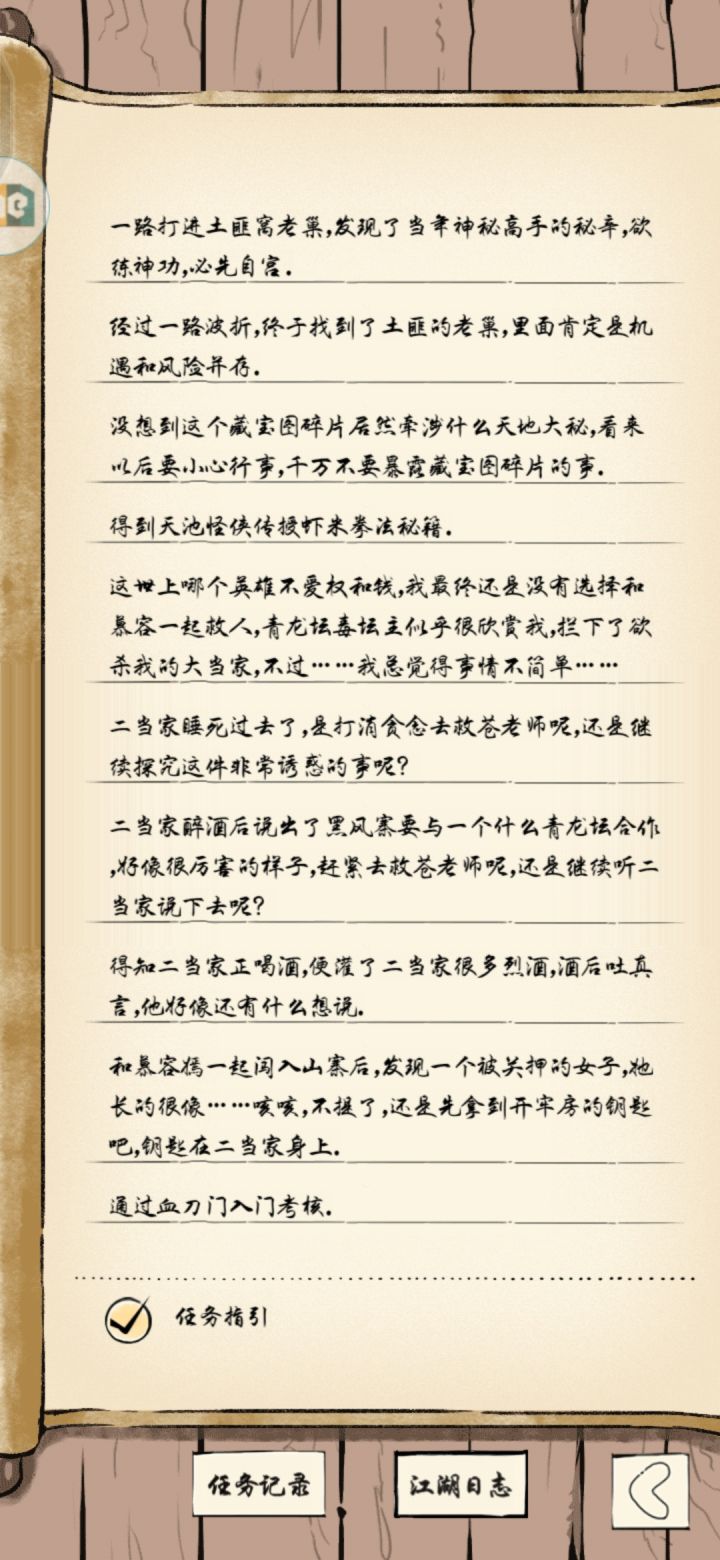 一路打进土匪窝老巢,发现了当年神秘高手的秘辛,欲
练神功,必先自宫.
经过一路波折,终于找到了土匪的老巢,里面肯定是机
遇和风险并存.
没想到这个藏宝图碎片居然牵涉什么天地大秘,看来
以后要小心行事,千万不要暴露藏宝图碎片的事.
得到天池怪侠传授虾米拳法秘籍.
这世上哪个英雄不爱权和钱,我最终还是没有选择和
慕容一起救人,青龙坛毒坛主似乎很欣赏我,拦下了欲
杀我的大当家,不过……我总觉得事情不简单……
二当家睡死过去了,是打消贪念去救苍老师呢,还是继
续探究这件非常诱惑的事呢?
二当家醉酒后说出了黑风寨要与一个什么青龙坛合作
,好像很厉害的样子,赶紧去救苍老师呢,还是继续听二
当家说下去呢?
得知二当家正喝酒,便灌了二当家很多烈酒,酒后吐真
言,他好像还有什么想说.
和慕容嫣一起闯入山寨后,发现一个被关押的女子,她
长的很像……咳咳,不提了,还是先拿到开牢房的钥匙
吧,钥匙在二当家身上.
通过血刀门入门考核.
任务指引
任务记录
江湖日志